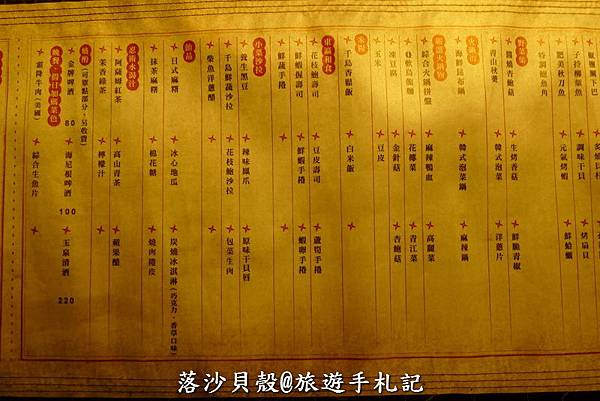 鮮蛤蠣
烤扇貝
子持柳葉魚
調味干貝
肥美秋刀魚
元氣烤蝦
鮮脆青椒
生烤香菇
醬燒杏鮑菇
洋蔥片
韓式泡菜
青山秋葵
海鮮昆布鍋
韓式泡菜鍋
麻辣鍋
綜合火鍋拼盤
麻辣鴨血
高麗菜
Q軟烏龍麵
花椰菜
青江菜
凍豆腐
金針菇
杏鮑菇
玉米
豆皮
千島香鬆飯
白米飯
東瀛和食
花枝鮑壽司
豆皮壽司
蘆筍手捲
鮮蝦握壽司
鮮蝦手捲
蝦卵手捲
鮮蔬手捲
小菜沙拉
養生黑豆
辣味鳳爪
原味干貝唇
千島鮮蔬沙拉
花枝鮑沙拉
包菜生肉
柴魚洋蔥醋
甜品
日式麻糬
冰心地瓜
炭燒冰淇淋(巧克力,香草口味)
抹茶麻糬
棉花糖
燒肉捲皮
忍術水潟汁
阿薩姆紅茶
高山青茶
蘋果醋
茉香綠茶
檸檬汁
金牌啤酒 80
海尼根啤酒 100
玉泉清酒 220
霜降牛肉(美國)
綜合生魚片
落沙貝殼@旅遊手札記